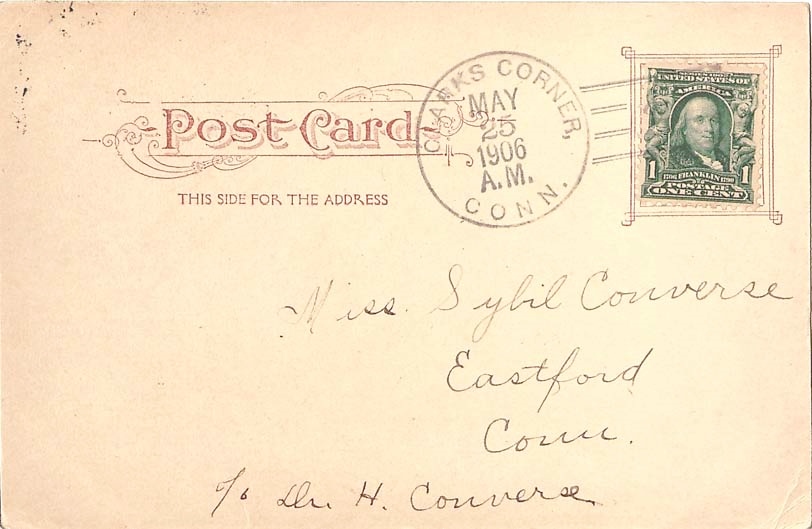 Post Card
THIS SIDE FOR THE ADDRESS
CLARKS CORNER,
MAY
25
1906
A.M.
CONN.
SERIES 1902
UNITED STATES OF
AMERICA
1 1706 FRANKLIN 1790 1
POSTAGE
ONE CENT
Miss. Sybil Converse
Eastford
Conn.
℅ Dr. H. Converse